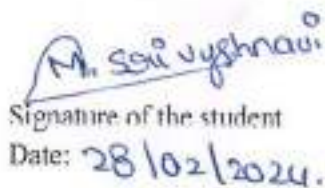 M. Sri vyshnavi
Signature of the student
Date: 28/02/2024.